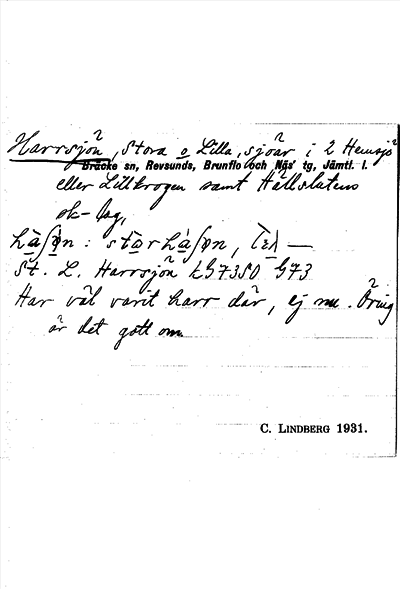 Harrsjön, Stora o Lilla, sjöar i 2 Hemsjö
Bräcke sn, Revsunds, Brunflo och Näs' tg, Jämtl. l.
eller Lillkrogen samt Hällslåtens
sk-lag.
hà̱ʃø̱n : stà̱rhà̱ʃøn, lɛl —
St. L. Harrsjön LG7350 G73
Har väl varit harr där, ej nu. Öring
är det gott om
C. LINDBERG 1931.